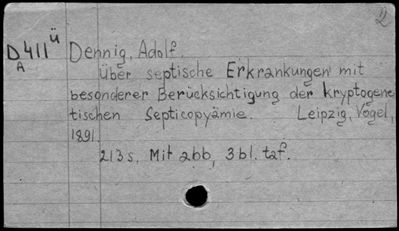 D411ü Dennig, Adolf.
A
Über septische Erkrankungen mit
besonderer Berücksichtigung der kryptogene
tischen Septicopyämie. Leipzig, Vogel,
1891.
213 s. Mit abb, 3 bl. taf.